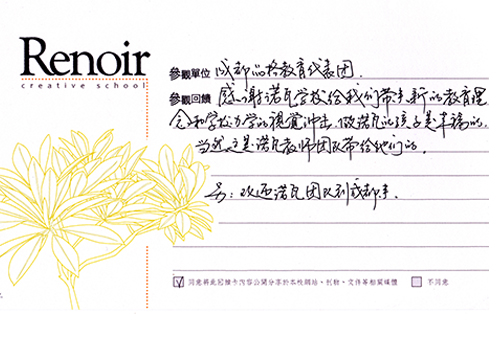 Renoir
creative school
參觀單位 成都品格教育代表团.
參觀回饋 感谢诺瓦学校给我们带来新的教育理
念和学校办学的视觉冲击,做诺瓦的孩子是幸福的,
当然这是诺瓦教师团队带给他们的.
另:欢迎诺瓦团队到成都来.
同意將此記錄卡內容公開分享於本校網站、刊物、文件等相關媒體 不同意